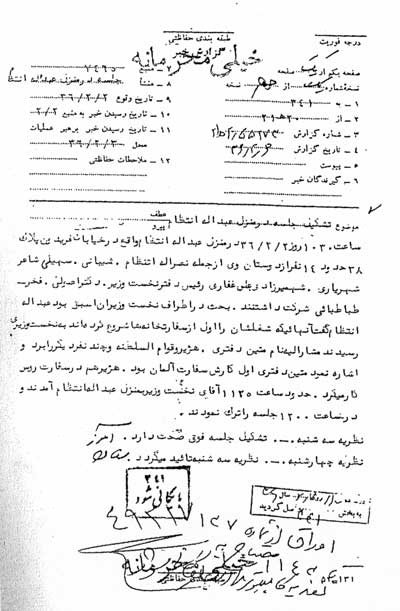 درجه فوریت
طبقه بندی حفاظتی
گزارش خبر
خیلی محرمانه
صفحه یک از یک صفحه
نسخه شماره از نسخه
۱ - به ۳۴۱
۲ - از ۲۰ ه ۲۱
۳ - شماره گزارش
۴ - تاریخ گزارش
۵ - پیوست
۶ - گیرندگان خبر
۷ - منبع ۷۴۹۵
۸ - منشأ جلسه در منزل عبداله انتظام
۹ - تاریخ وقوع ۳۶/۲/۲
۱۰ - تاریخ رسیدن خبر به منبع ۲/۲
۱۱ - تاریخ رسیدن خبر برهبر عملیات ۳۶/۲/۳
۱۲ - ملاحظات حفاظتی
موضوع تشکیل جلسه در منزل عبداله انتظام
عطف
پیرو
ساعت ۱۰۳۰ روز ۳۶/۲/۲ در منزل عبداله انتظام واقع در خیابان فریدین پلاک
۳۸ حدود ۱۴ نفر از دوستان وی از جمله نصراله انتظام . شیبانی . سهیلی شاعر
شهریاری . شهمیرزادی علی غفاری رئیس دفتر نخست وزیر . دکتر اعدیلی . فخر
طباطبائی شرکت داشتند . بحث در اطراف نخست وزیران اسبق بود عبداله
انتظام گفت آنهائیکه شغلشان را اول از سفارتخانه ها شروع کرده اند به نخست وزیری
رسیدند مشارالیه نام متین دفتری . هژیر و قوام السلطنه و چند نفر دیگر را برد و
اشاره نمود متین دفتری اول کارش سفارت آلمان بود . هژیر هم در سفارت روس
کار میکرد . حدود ساعت ۱۱۲۵ آقای نخست وزیر بمنزل عبداله انتظام آمدند و
در ساعت ۱۲۰۰ جلسه را ترک نمودند .
نظریه سه شنبه .-. تشکیل جلسه فوق صحت دارد .
نظریه چهارشنبه .-. نظریه سه شنبه تائید میگردد
۳۴۱
بایگانی شود
اوراق از شماره
خیلی محرمانه
طبقه بندی حفاظتی